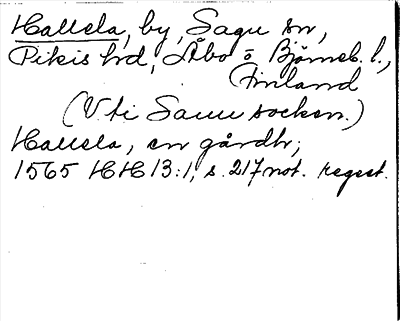 Hallela, by, Sagu sn,
Pikis hrd, Åbo o Björneb. l.,
Finland
(Uti Sauu socken.)
Hallela, en gårdh;
1565 HH 13:1, s. 217 not. regest.